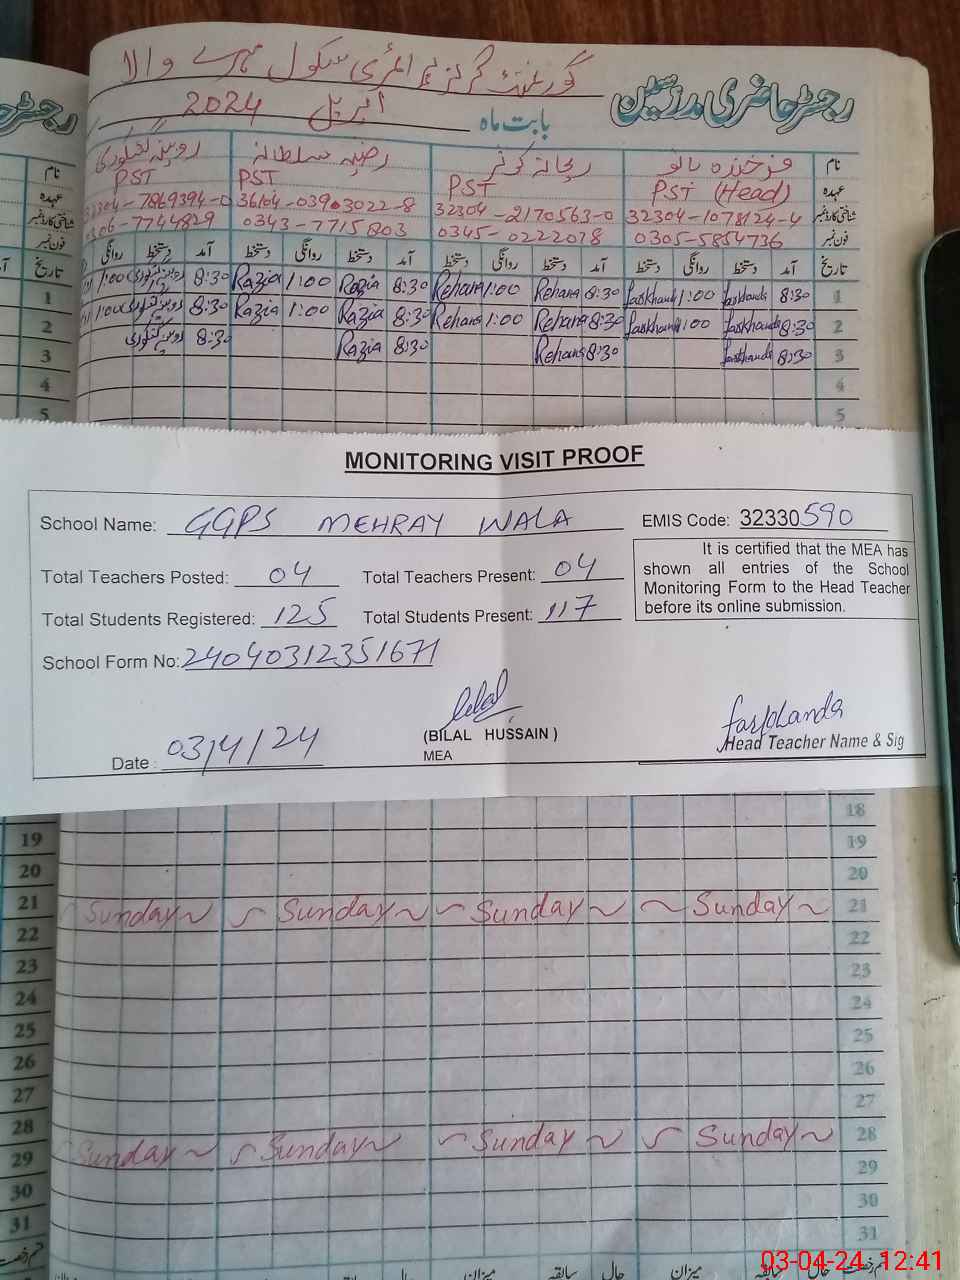 گورنمنٹ گرلز پرائمری سکول مہرے والا
رجسٹر حاضری مدرسین
بابت ماہ اپریل 2024
نام فرخندہ بانو ریحانہ کوثر رضیہ سلطانہ روبینہ
عہدہ PST (Head) PST PST PST
شناختی کارڈ نمبر 32304-1078124-4 32304-2170563-0 36104-03903022-8 32304-7869394-0
فون نمبر 0305-5854736 0345-0222078 0343-7715803 0306-7744829
تاریخ آمد دستخط روانگی دستخط آمد دستخط روانگی دستخط آمد دستخط روانگی دستخط آمد دستخط روانگی
1 8:30 faskhanda 1:00 faskhanda 8:30 Rehana 1:00 Rehana 8:30 Razia 1:00 Razia 8:30 1:00
2 8:30 faskhanda 1:00 faskhanda 8:30 Rehana 1:00 Rehana 8:30 Razia 1:00 Razia 8:30 1:00
3 8:30 faskhanda 8:30 Rehana 8:30 Razia 8:30
4
5
MONITORING VISIT PROOF
School Name: GGPS MEHRAY WALA EMIS Code: 32330590
Total Teachers Posted: 04 Total Teachers Present: 04
Total Students Registered: 125 Total Students Present: 117
School Form No: 24040312351671
It is certified that the MEA has
shown all entries of the School
Monitoring Form to the Head Teacher
before its online submission.
Date : 03/4/24
(BILAL HUSSAIN)
MEA
farkhanda
Head Teacher Name & Sig
18
19 19
20 20
21 Sunday Sunday Sunday Sunday 21
22 22
23 23
24 24
25 25
26 26
27 27
28 Sunday Sunday Sunday Sunday 28
29 29
30 30
31 31
میزان سابقہ حال میزان سابقہ حال
03-04-24 12:41